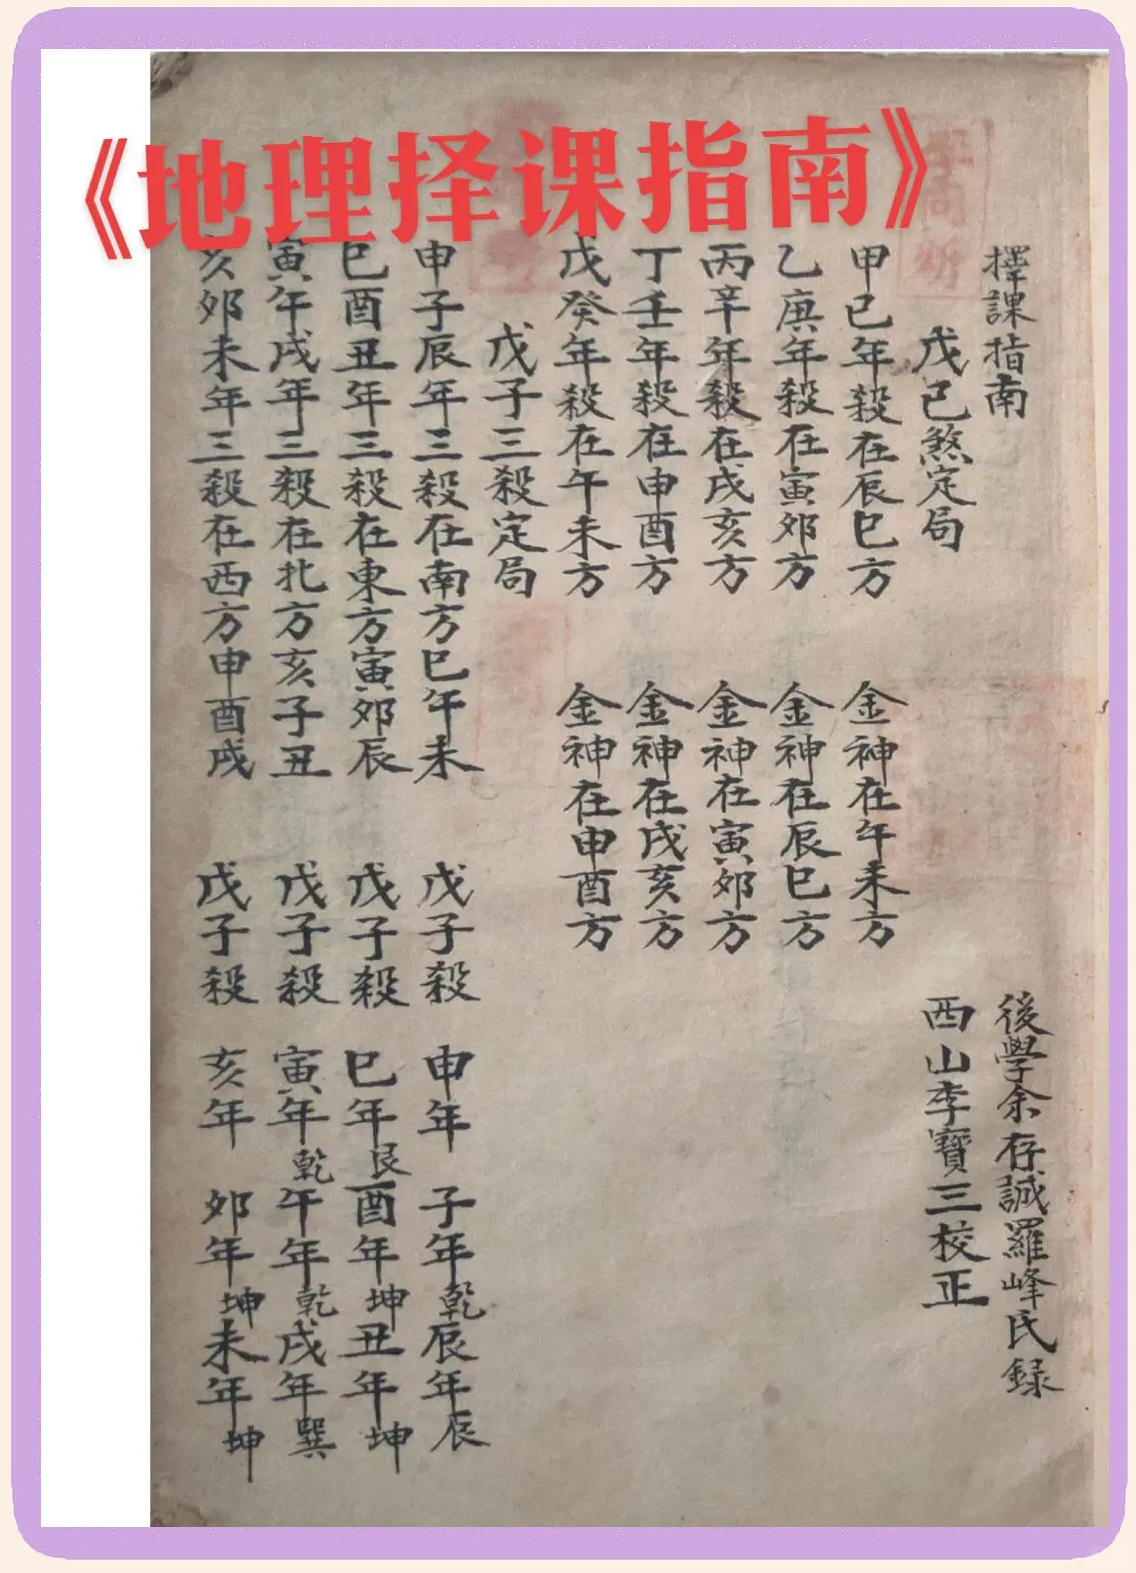 《地理择课指南》
擇課指南
後學余存誠羅峰氏録
戊己煞定局
西山李寶三校正
甲己年殺在辰巳方 金神在午未方
乙庚年殺在寅郊方 金神在辰巳方
丙辛年殺在戌亥方 金神在寅郊方
丁壬年殺在申酉方 金神在戌亥方
戊癸年殺在午未方 金神在申酉方
戊子三殺定局
申子辰年三殺在南方巳午未 戊子殺 申年 子年乾辰年辰
巳酉丑年三殺在東方寅郊辰 戊子殺 巳年艮酉年坤丑年坤
寅午戌年三殺在北方亥子丑 戊子殺 寅年乾午年乾戌年巽
亥郊未年三殺在西方申酉戌 戊子殺 亥年 郊年坤未年坤